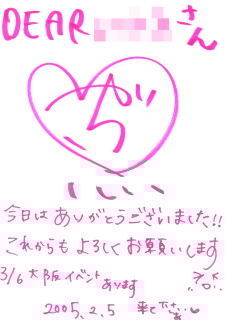 DEAR さん
今日はありがとうございました!!
これからもよろしくお願いします
3/6 大阪イベント
あります
2005.2.5 来て下さい